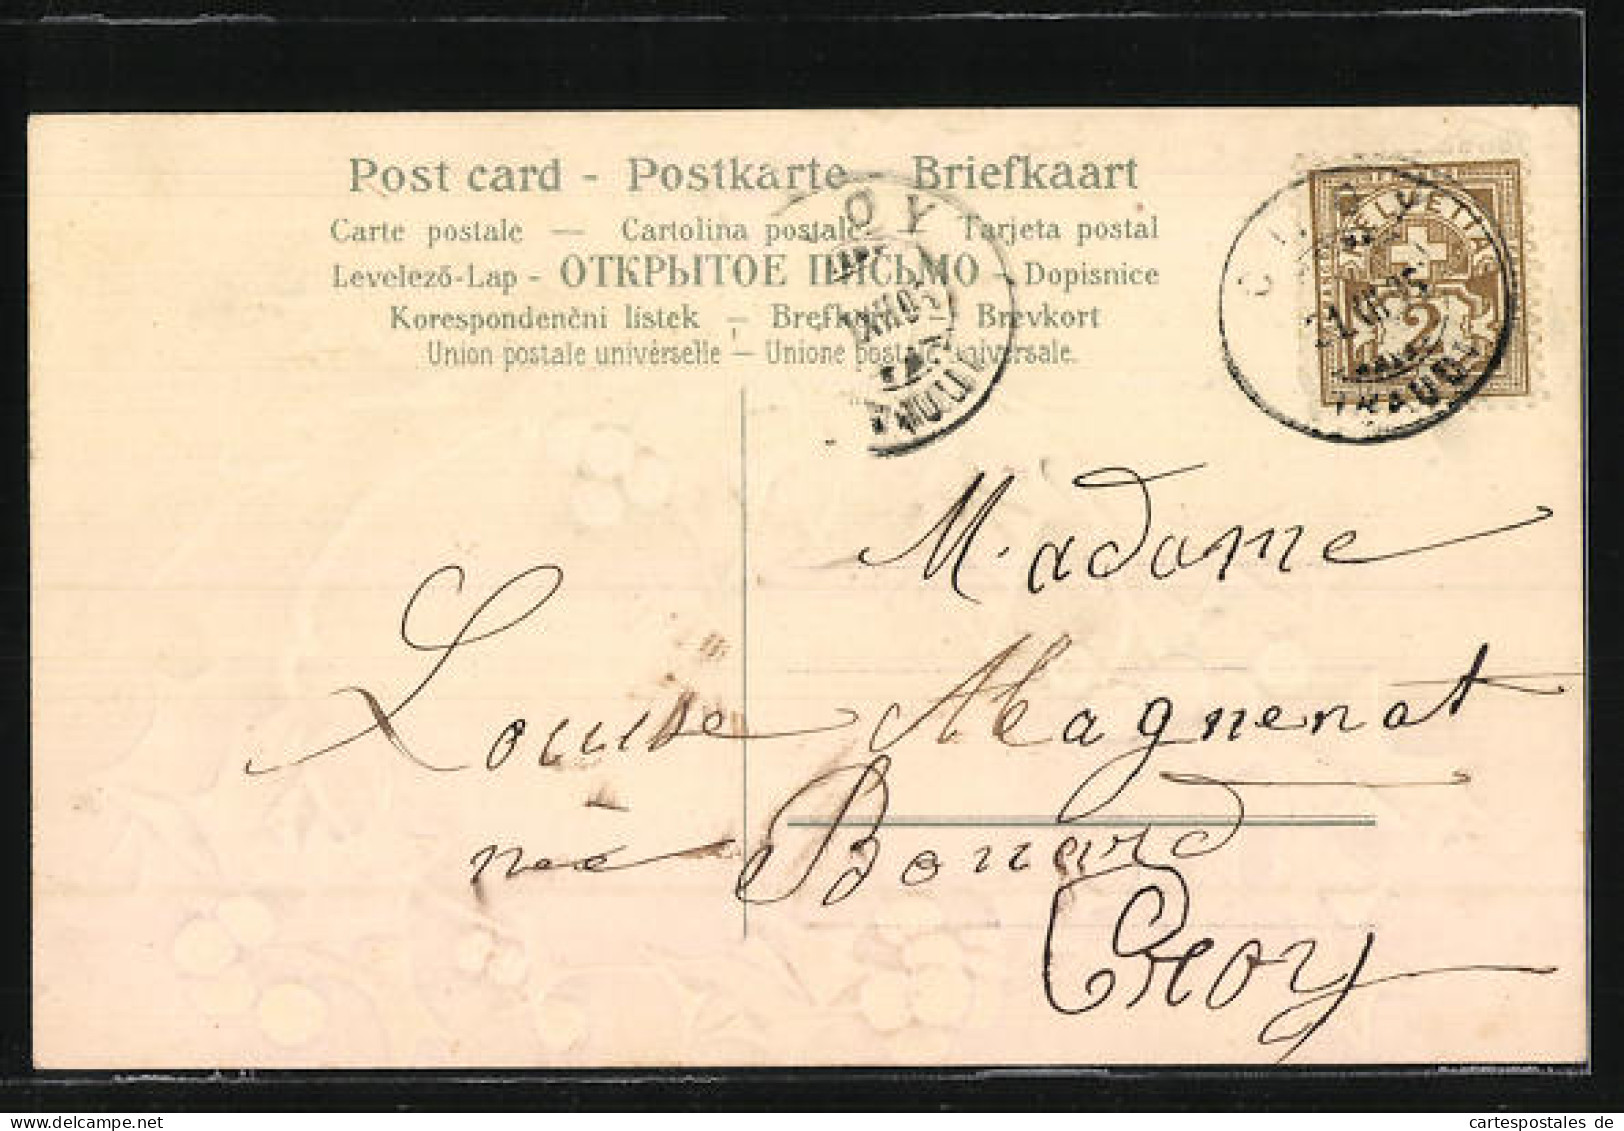 Post card - Postkarte - Briefkaart
Carte postale — Cartolina postale — Tarjeta postal
Levelező-Lap - ОТКРЫТОЕ ПИСЬМО - Dopisnice
Korespondenčni listek – Brefkort – Brevkort
Union postale universelle — Unione postale universale.
HELVETIA
2
Madame
Louise Magnenat
née Bonard
Croy
cartespostales de